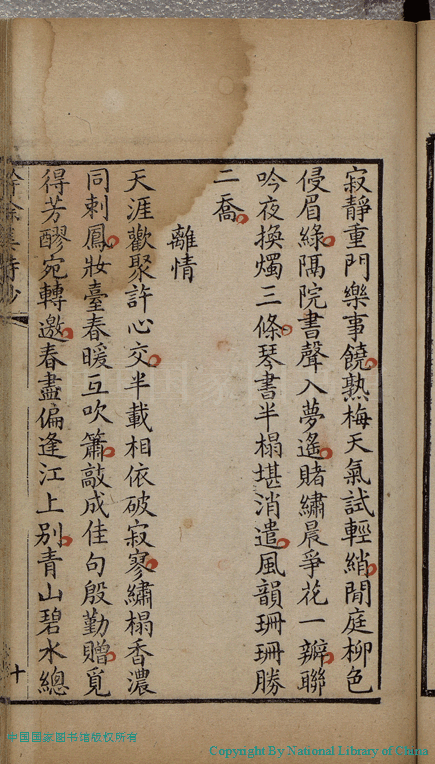 寂靜重門樂事饒熟梅天氣試輕綃閒庭柳色
侵眉綠隔院書聲入夢遙賭繡晨爭花一瓣聯
吟夜換燭三條琴書半榻堪消遣風韻珊珊勝
二喬
離情
天涯歡聚許心交半載相依破寂寥繡榻香濃
同刺鳳妝臺春暖互吹簫敲成佳句殷勤贈覓
得芳醪宛轉邀春盡偏逢江上別青山碧水總
十
中国国家图书馆版权所有
Copyright By National Library of China